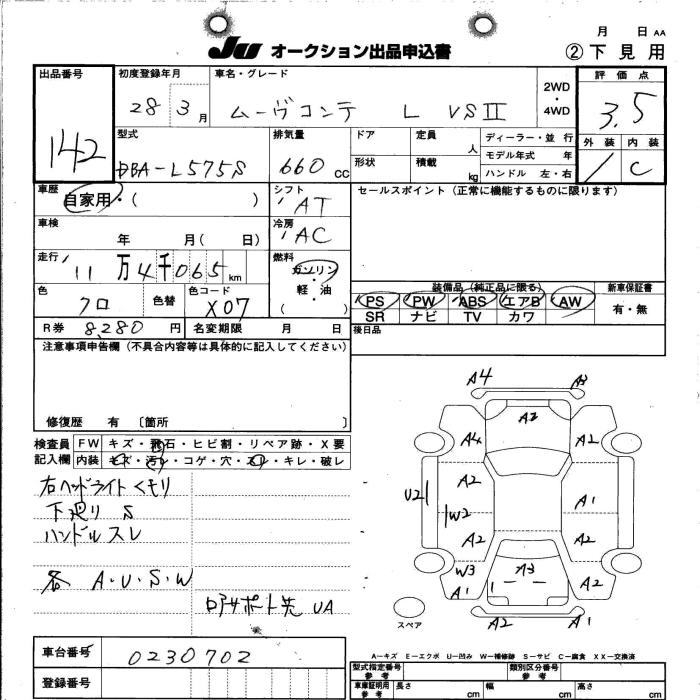 月 日 AA
JU オークション出品申込書 ②下見用
出品番号 142
初度登録年月 28 3月
車名・グレード ムーヴコンテ L VSII
2WD・4WD
評価点 3.5
型式 DBA-L575S
排気量 660 CC
ドア 定員 人
形状 積載 kg
ディーラー・並行
モデル年式 年
ハンドル 左・右
外装 内装 C
車歴 自家用・( )
シフト AT
セールスポイント(正常に機能するものに限ります)
車検 年 月( 日)
冷房 AC
走行 11万4千065 km
燃料 ガソリン・軽油 ( )
色 クロ 色替 色コード X07
装備品(純正品に限る) 新車保証書
PS PW ABS エアB AW 有・無
SR ナビ TV カワ
R券 8280 円 名変期限 月 日
後日品
注意事項申告欄(不具合内容等は具体的に記入してください)
修復歴 有 〔箇所 〕
検査員記入欄
FW キズ・飛石・ヒビ割・リペア跡・X要
内装 キズ・汚れ・コゲ・穴・スレ・キレ・破レ
右ヘッドライトくモリ
下廻り S
ハンドルスレ
各 A・U・S・W
ロアサポート先 UA
A4 A3
A2
A4 A2
A2
U2 A1
W2
A2 A2
W3 A3
A1 A2
スペア A2 A1
A-キズ E-エクボ U-凹み W-補修跡 S-サビ C-腐食 XX-交換済
車台番号 0230702
登録番号
型式指定番号 参考 類別区分番号 参考
車庫証明用 参考 長さ cm 幅 cm 高さ cm